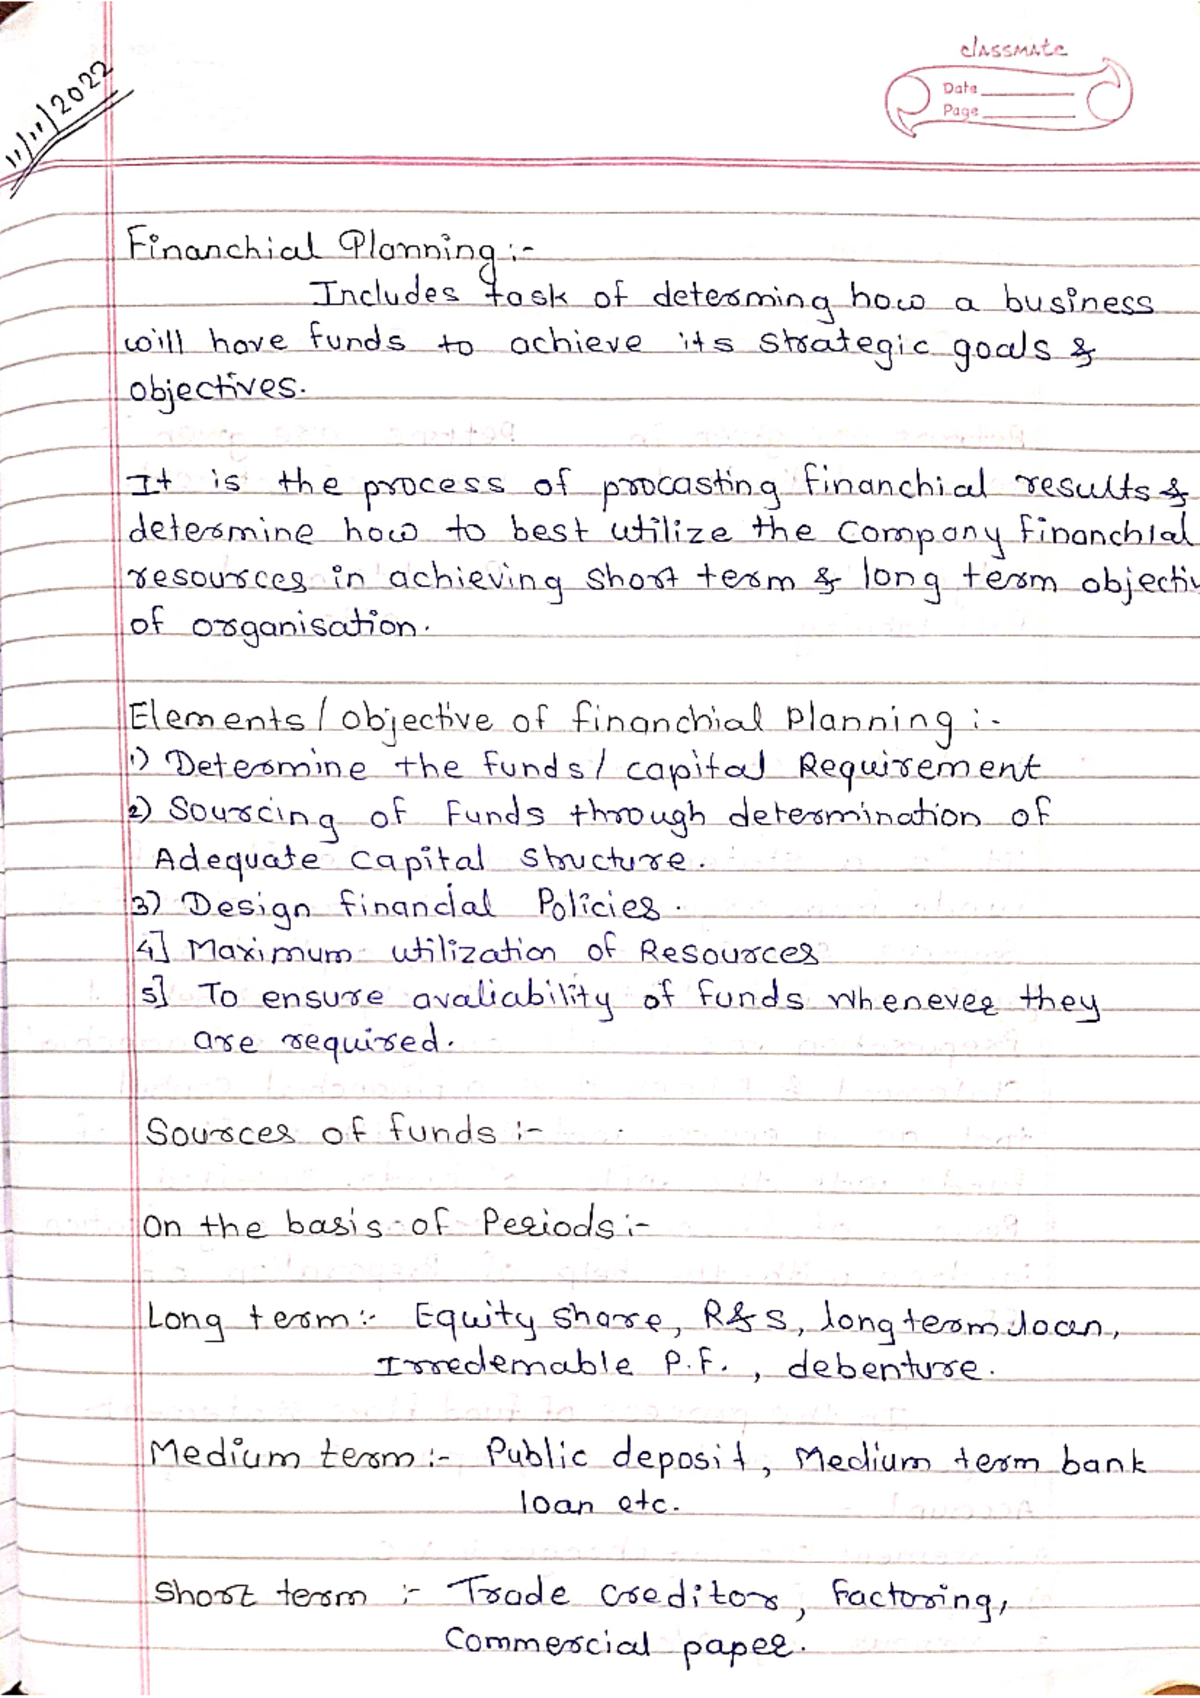 classmate
Date
Page
11/11/2022
Financhial Planning :-
Includes task of determing how a business
will have funds to achieve its strategic goals &
objectives.
It is the process of procasting financhial results &
determine how to best utilize the company financhial
resources in achieving short term & long term objectiv
of organisation.
Elements / objective of financhial planning :-
1) Determine the funds / capital Requirement
2) Sourcing of Funds through determination of
Adequate capital structure.
3) Design financial Policies.
4] Maximum utilization of Resources
5] To ensure avaliability of funds whenever they
are required.
Sources of funds :-
On the basis of Periods :-
Long term :- Equity share, R&S, long term loan,
Irredemable P.F., debenture.
Medium term :- Public deposit, Medium term bank
loan etc.
Short term :- Trade creditor, Factoring,
Commercial paper.